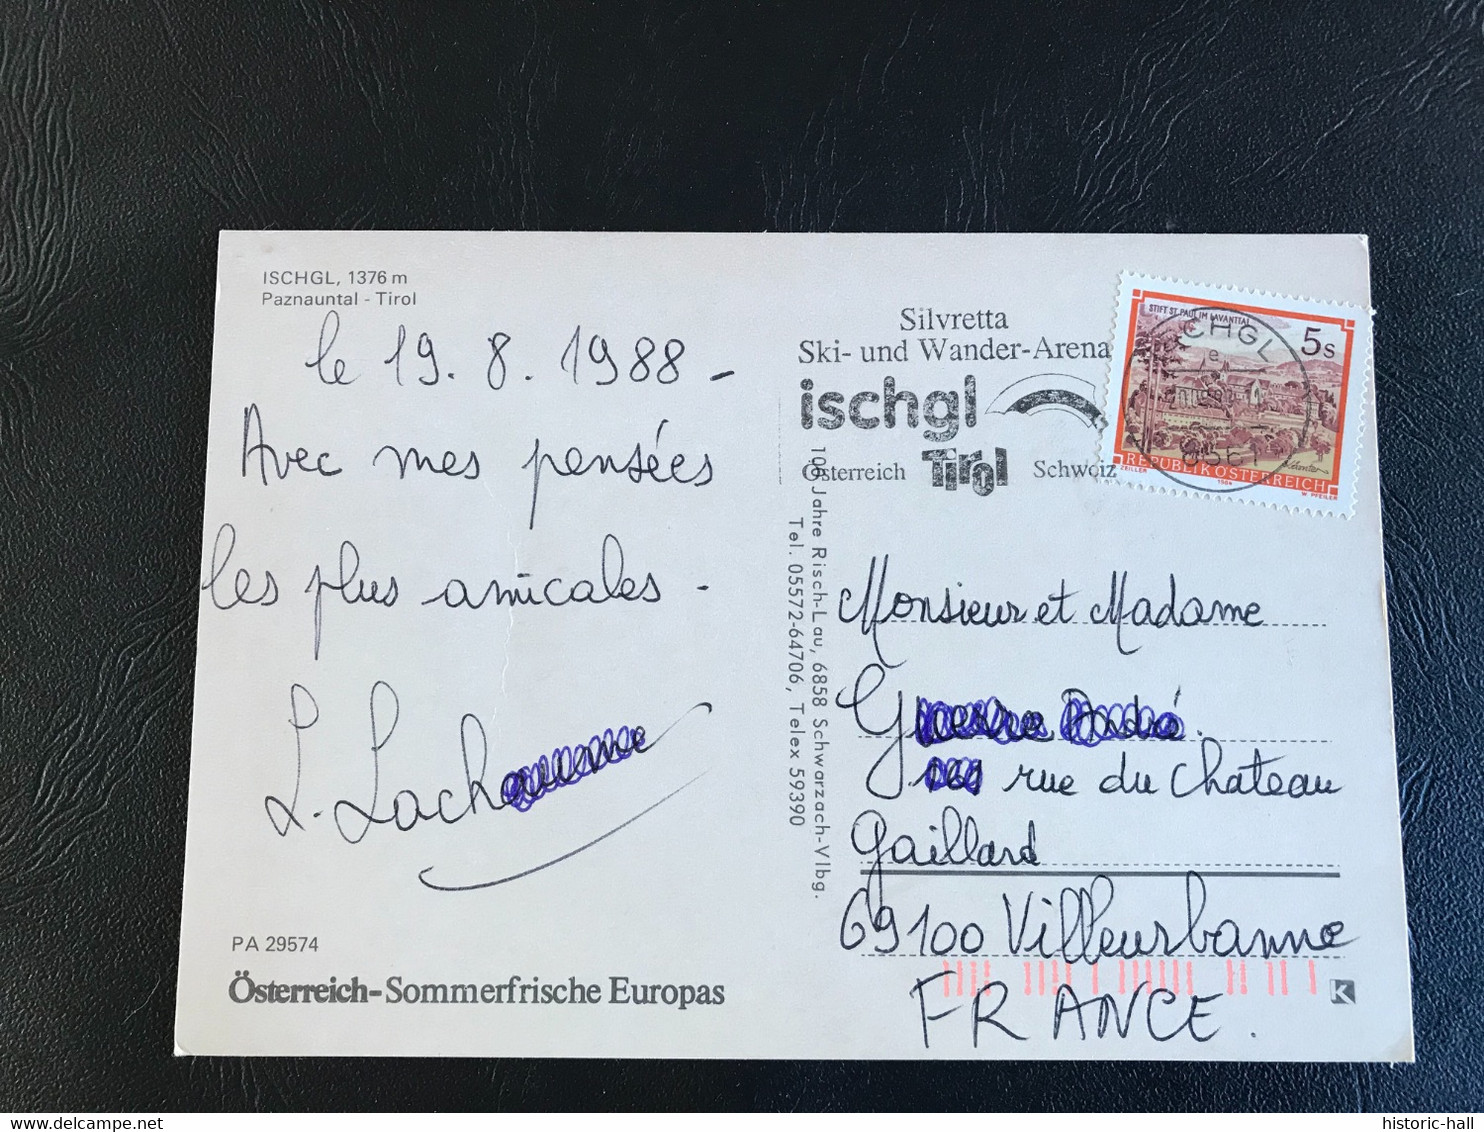 ISCHGL, 1376 m
Paznauntal - Tirol
le 19.8.1988 -
Avec mes pensées
les plus amicales -
L. Lach
PA 29574
Österreich-Sommerfrische Europas
106 Jahre Risch-Lau, 6858 Schwarzach-Vlbg.
Tel. 05572-64706, Telex 59390
Silvretta
Ski- und Wander-Arena
ischgl
Österreich Tirol Schweiz
STIFT ST. PAUL IM LAVANTTAL
5s
CHGL
6561
REPUBLIK ÖSTERREICH
ZEILLER 1984 W. PFEILER
Monsieur et Madame
G
rue du Chateau
Gaillard
69100 Villeurbanne
FRANCE.
K
historic-hall